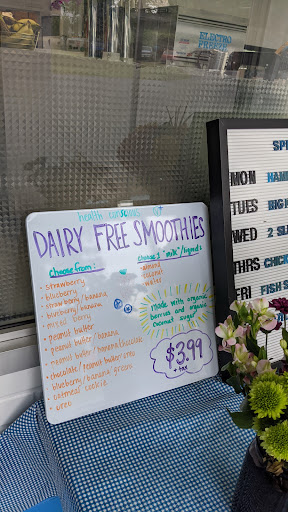 ELECTRO
FREEZE
health conscious
DAIRY FREE SMOOTHIES
choose from:
• strawberry
• blueberry
• strawberry / banana
• blueberry / banana
• mixed berry
• peanut butter
• peanut butter / banana
• peanut butter / banana / chocolate
• chocolate / peanut butter / oreo
• blueberry / banana / green
• oatmeal cookie
• oreo
choose "milk" / liquid:
almond
coconut
water
made with organic
berries and organic
coconut sugar
$3.99
+ tax
SP
MON HAM
TUES BIG
WED 2 SL
THRS CHICK
FRI FISH S